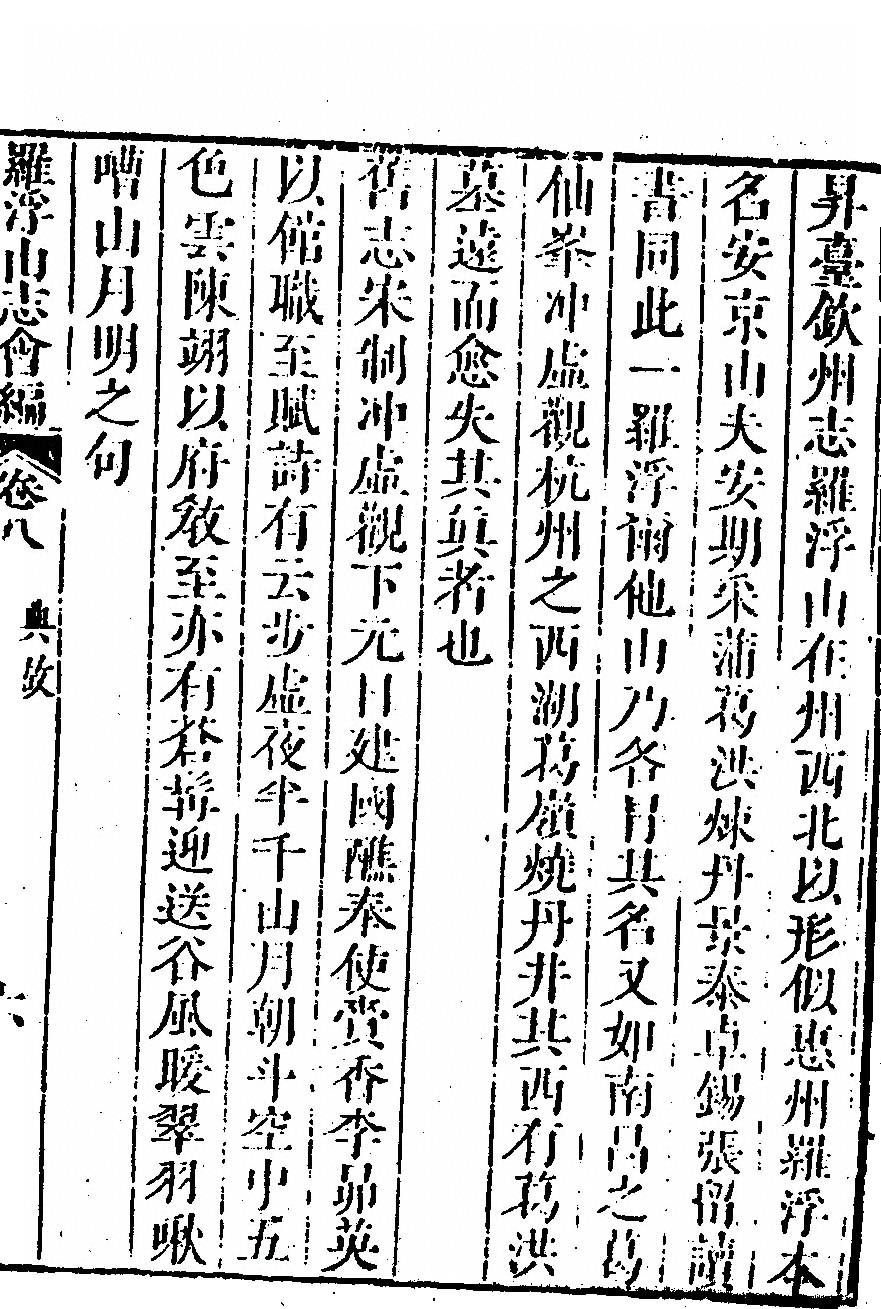 昇臺欽州志羅浮山在州西北以形似惠州羅浮本
名安京山夫安期采蒲葛洪煉丹景泰卓錫張留讀
書同此一羅浮爾他山乃各冐其名又如南昌之葛
仙峯冲虛觀杭州之西湖葛嶺燒丹井其西有葛洪
墓遠而愈失其眞者也
舊志宋制冲虛觀下元日建國醮奉使賫香李昴英
以館職至賦詩有云步虛夜半千山月朝斗空中五
色雲陳翊以府敎至亦有叅嵜迎送谷風暖翠羽啾
嘈山月明之句
羅浮山志會編 卷八 典故 六